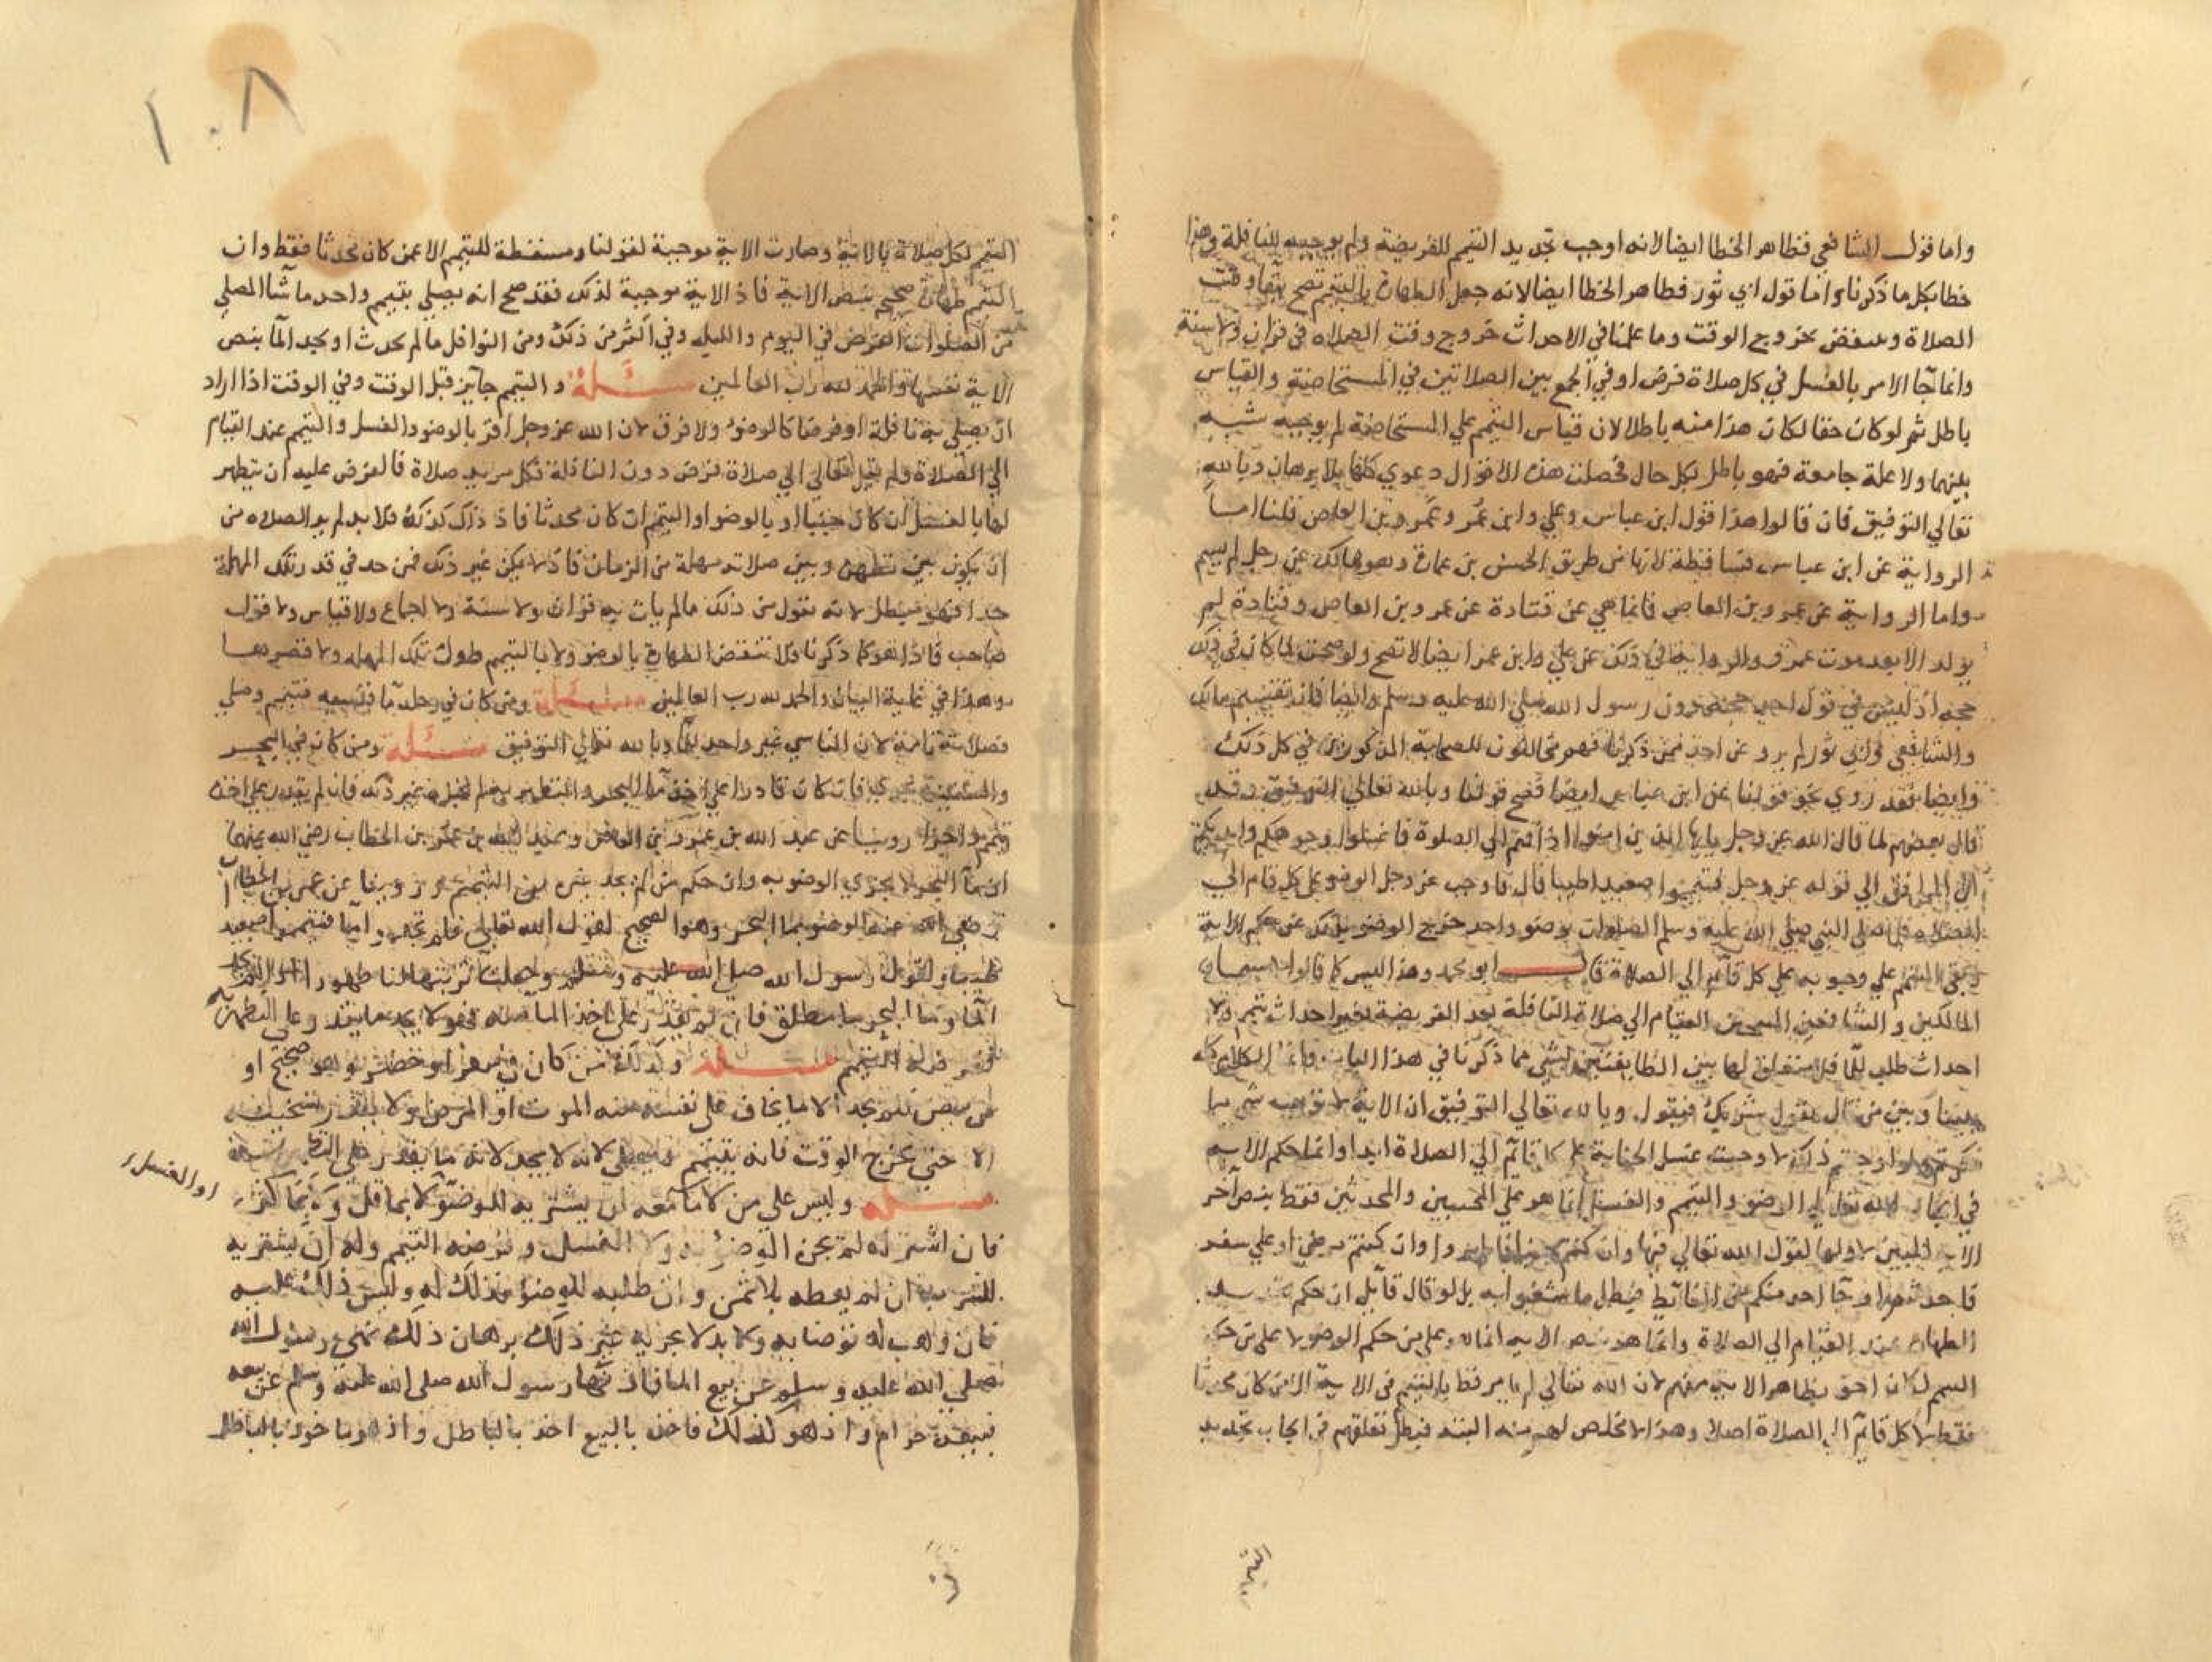 واما قول الشافعي فظاهر الخطا ايضا لانه اوجب تجديد التيمم للفريضة ولم يوجبه للنافلة وهذا
خطا بكل ما ذكرنا واما قول ابي ثور فظاهر الخطا ايضا لانه جعل الطهارة بالتيمم تصح ببقا وقت
الصلاة وينتقض بخروج الوقت وما علمنا في الاحداث خروج وقت الصلاه في قران ولا سنة
وانما جا الامر بالغسل في كل صلاة فرض او في الجمع بين الصلاتين في المستحاضة والقياس
باطل ثم لو كان حقا لكان هذا منه باطلا لان قياس التيمم علي المستحاضة لم يوجبه شبه
بينهما ولا علة جامعة فهو باطل بكل حال فحصلت هذه الاقوال دعوي كلها بلا برهان وبالله
تعالي التوفيق فان قالوا هذا قول ابن عباس وعلي وابن عمر وعمرو بن العاص قلنا اما
الرواية عن ابن عباس فساقطة لانها من طريق الحسن بن عمارة وهو هالك عن رجل لم يسم
واما الرواية عن عمرو بن العاصي فانما هي عن قتادة عن عمرو بن العاص وقتادة لم
يولد الا بعد موت عمرو والرواية في ذلك عن علي وابن عمر ايضا لا تصح ولو صحت لما كان في ذلك
حجة اذ ليس في قول احد حجة دون رسول الله صلي الله عليه وسلم وايضا فان تقسيم مالك
والشافعي وابي ثور لم يرو عن احد ممن ذكرنا فهم مخالفون للصحابة المذكورين في كل ذلك
وايضا فقد روي نحو قولنا عن ابن عباس ايضا فصح قولنا وبالله تعالي التوفيق وقد
قال بعضهم لما قال الله عز وجل يايها الذين امنوا اذا قمتم الي الصلوة فاغسلوا وجوهكم وايديكم
الي المرافق الي قوله عز وجل فتيمموا صعيدا طيبا قال فاوجب عز وجل الوضو علي كل قايم الي
الصلاه فلما صلي النبي صلي الله عليه وسلم الصلوات بوضو واحد خرج الوضو بذلك عن حكم الاية
وبقي التيمم علي وجوبه علي كل قايم الي الصلاة قال ابو محمد وهذا ليس كما قالوا لا سيما
المالكين والشافعين المبيحين القيام الي صلاة النافلة بعد الفريضة بغير احداث تيمم ولا
احداث طلب للما فلا متعلق لهاتين الطايفتين بشي مما ذكرنا في هذا الباب وانما الكلام
بيننا وبين من قال بقول شريك فنقول وبالله تعالي التوفيق ان الاية لا توجب شيا مما
ذكرتم ولو اوجبتم ذلك لا وجبت غسل الجنابة علي كل قايم الي الصلاة ابدا وانما حكم الايه
في ايجاب الله تعالي الوضو والتيمم والغسل انما هو علي المجنبين والمحدثين فقط بنص اخر
الايه المبين لاولها لقول الله تعالي فيها وان كنتم جنبا فاطهروا وان كنتم مرضي او علي سفر
فاحدثتم او جا احد منكم من الغائط فبطل ما شغبوا به بل لو قال قايل ان حكم تجديد
الطهارة عند القيام الي الصلاة وانما هو بنص الايه انما هو علي من حكم الوضو لا علي من حكم
التيمم لكان احق بظاهر الايه منهم لان الله تعالي لم يامر قط بالتيمم في الاية الا من كان محدثا
فقط لا كل قايم الي الصلاة اصلا وهذا لا مخلص لهم منه البتة فبطل تعلقهم في ايجاب تجديد
١٠٨
التيمم لكل صلاة بالاية وصارت الاية موجبة لقولنا ومسقطة للتيمم الا عمن كان محدثا فقط وان
التيمم طهارة صحيح بنص الاية فاذ الاية موجبة لذلك فقد صح انه يصلي بتيمم واحد ما شا المصلي
من الصلوات الفرض في اليوم والليله وفي اكثر من ذلك ومن النوافل ما لم يحدث او يجد الما بنص
الاية نفسها والحمد لله رب العالمين مسئلة والتيمم جايز قبل الوقت وفي الوقت اذا اراد
ان يصلي به نافلة او فرضا كالوضو ولا فرق لان الله عز وجل امر بالوضو والغسل والتيمم عند القيام
الي الصلاة ولم يقل تعالي الي صلاة فرض دون النافلة فكل مريد صلاة فالفرض عليه ان يتطهر
لها بالغسل ان كان جنبا او بالوضو او التيمم ان كان محدثا فاذ ذلك كذلك فلا بد لمريد الصلاه من
ان يكون بين تطهره وبين صلاته مهلة من الزمان فاذ لا يمكن غير ذلك فمن حد في قدر تلك المهلة
حدا فهو مبطل لانه يقول من ذلك ما لم يات به قران ولا سنة ولا اجماع ولا قياس ولا قول
صاحب فاذ هو كما ذكرنا فلا تنتقض الطهارة بالوضو ولا بالتيمم طول تلك المهله ولا قصرها
وهذا في غاية البيان والحمد لله رب العالمين مسئلة ومن كان في رحله ما فنسيه فتيمم وصلي
فصلاته تامة لان الناسي غير واجد للما وبالله تعالي التوفيق مسئلة ومن كان في البحر
والسفينة تجري فان كان قادرا علي اخذ ما البحر والتطهر به لم يجزه غير ذلك فان لم يقدر علي اخذه
تيمم واجزاه روينا عن عبد الله بن عمرو بن العاص وعبد الله بن عمر بن الخطاب رضي الله عنهما
ان ما البحر لا يجزي الوضو به وان حكم من لم يجد غيره التيمم وروينا عن عمر بن الخطاب
رضي الله عنه الوضو بما البحر وهو الصحيح لقول الله تعالي فلم تجدوا ما فتيمموا صعيدا
طيبا ولقول رسول الله صلى الله عليه وسلم وجعلت تربتها لنا طهورا اذا لم نجد
الما وما البحر ما مطلق فان لم يقدر علي اخذ الما منه فهو لا يجد ما يقدر على التطهر به
ففرضه التيمم مسئلة وكذلك من كان في سفر او حضر وهو صحيح او
مريض فلم يجد الا ما يخاف على نفسه منه الموت او المرض ولا يقدر على تسخينه
الا حتى يخرج الوقت فانه يتيمم ويصلي لانه لا يجد لانه ما يقدر علي التطهر به
مسئله وليس علي من لا ما معه ان يشتريه للوضو لا بما قل ولا بما كثر
او الغسل
فان اشتراه لم يجزه الوضو به ولا الغسل وفرضه التيمم وله ان يشتريه
للشرب ان لم يعطه بلا ثمن وان طلبه للوضو فذلك له وليس ذلك عليه
فان وهب له توضا به ولا بد لا يجزيه غير ذلك برهان ذلك نهي رسول الله
صلى الله عليه وسلم عن بيع الما فاذ نها رسول الله صلى الله عليه وسلم عن بيعه
فبيعه حرام واذ هو كذلك فاخذه بالبيع اخذ بالباطل واذ هو ماخوذ بالباطل